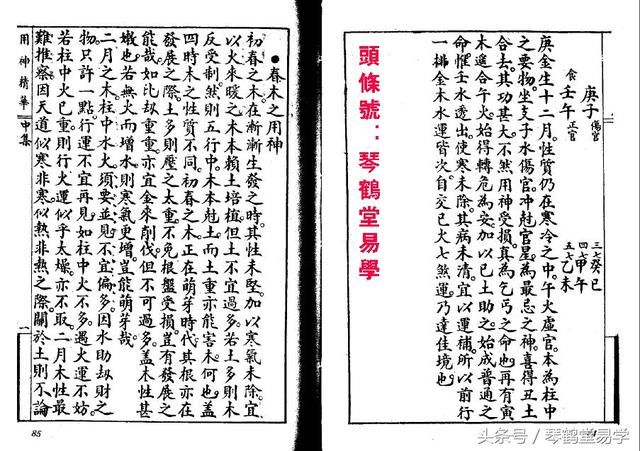 庚子 傷官
食 壬午 正官
三七癸巳
四七甲午
五七乙未
庚金生十二月。性質仍在寒冷之中。午火虛官。本為柱中
之要物。坐支子水傷官。冲尅官星。為最忌之神。喜得丑土
合去。其功甚大。不然用神受損。真為乞丐之命也。再有寅
木遙合午火。始得轉危為安。加以巳土助之。始成普通之
命。惟壬水透出。使寒未除。其病未清。宜以運補。所以前行
一拂金木水運皆次。自交巳火七煞運。乃達佳境也。
頭條號：琴鶴堂易學
●春木之用神
初春之木。在漸漸生發之時。其性未堅。加以寒氣未除。宜
以火來暖之。木本賴土培植。但土不宜過多。若土多則木
反受制。然則五行中。木本尅土。而土重亦能害木。何也。蓋
四時木之性質不同。初春之木。正在萌芽時代。其根亦在
發展之際。土多則壓之太重。不免根盤受損。豈有發展之
能哉。如比刼重重。亦宜金來削伐。但不可過多。蓋木性甚
嫩也。若無火而增水。則寒氣更增。豈能萌芽哉。
二月之木。柱中水火須要並見。不宜偏多。因水助刼財之
物。只許一點。行運不宜再見。如柱中火不多。遇火運不妨。
若柱中火已重。則行火運似乎太燥。亦不取。二月木性最
難推察。因天道似寒非寒。似熱非熱之際。關於土則不論
用神精華 中集 一
85
头条号／琴鹤堂易学